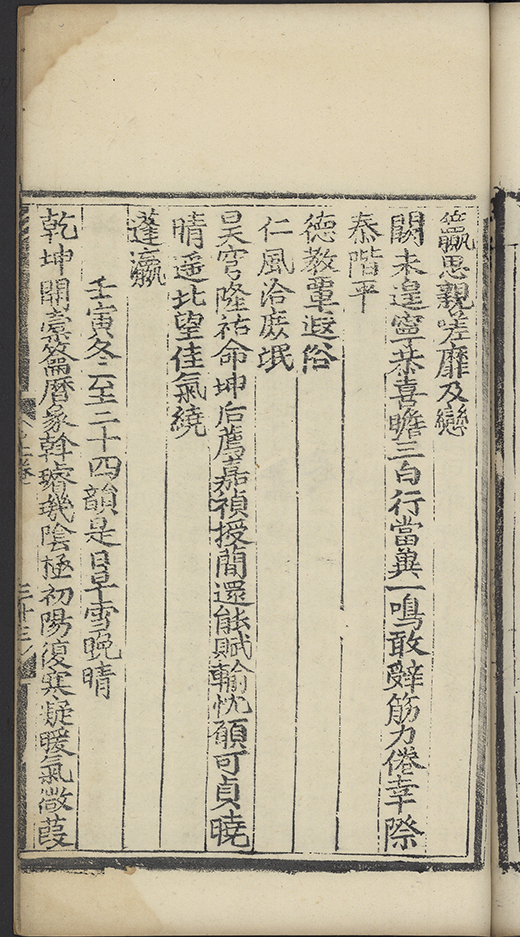 籯思親嗟靡及戀
闕未遑寧恭喜瞻三白行當冀一鳴敢辭筋力倦幸際
泰階平
德教覃遐俗
仁風洽庶氓
昊穹隆祐命坤后薦嘉禎授簡還能賦輸忱願可貞曉
晴遥北望佳氣繞
蓬瀛
壬寅冬至二十四韻是日早雪晚晴
乾坤開橐籥曆象斡璿璣陰極初陽復寒凝暖氣微葭
上卷
二十三